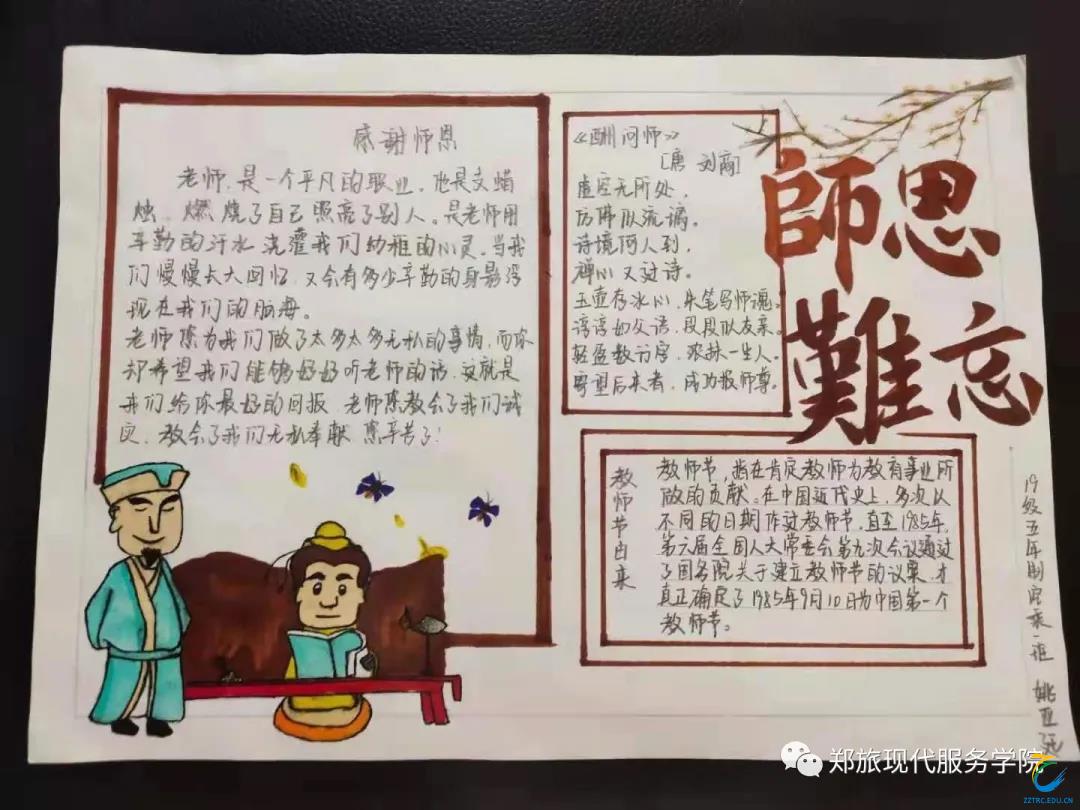 感谢师恩
老师,是一个平凡的职业。他是支蜡
烛、燃烧了自己照亮了别人。是老师用
辛勤的汗水浇灌我们幼稚的心灵。当我
们慢慢长大回忆,又会有多少辛勤的身影浮
现在我们的脑海。
老师您为我们做了太多太多无私的事情,而你
却希望我们能够好好听老师的话,这就是
我们给你最好的回报,老师您教会了我们诚
实、教会了我们无私奉献,您辛苦了!
《酬问师》
[唐 刘商]
虚空无所处,
仿佛似流璃。
诗境何人到,
禅心又过诗。
玉壶存冰心,朱笔写师魂。
谆谆如父语,殷殷似友亲。
轻盈数行字,浓抹一生人。
寄望后来者,成功报师尊。
師恩
難忘
教师节由来
教师节,旨在肯定教师为教育事业所
做的贡献。在中国近代史上,多次以
不同的日期作过教师节,直至1985年,
第六届全国人大常委会第九次会议通过
了国务院关于建立教师节的议案,才
真正确定了1985年9月10日为中国第一个
教师节。
19级五年制空乘一班
郑旅现代服务学院
ZZTRC.EDU.CN